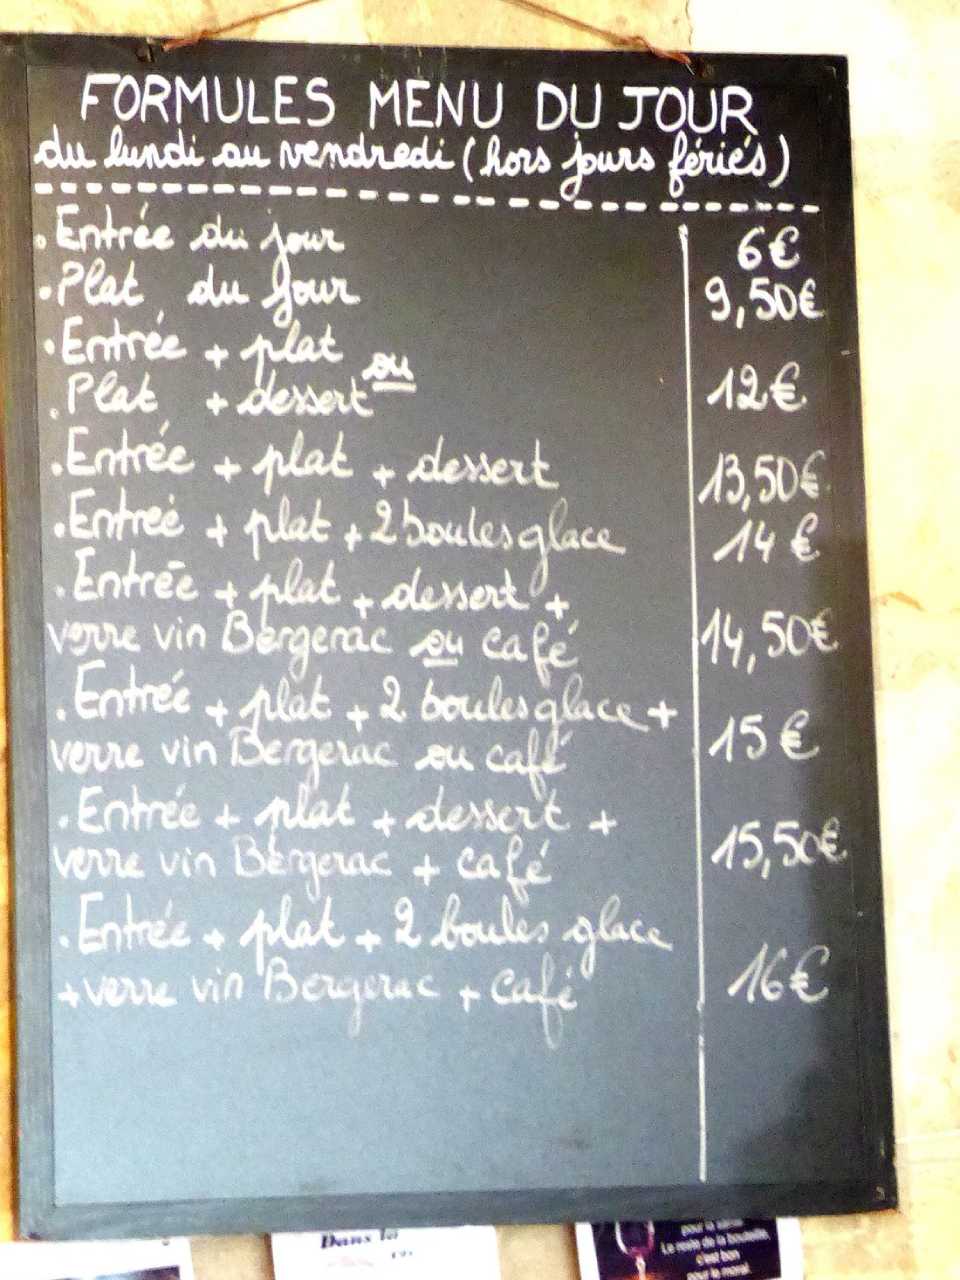 FORMULES MENU DU JOUR
du lundi au vendredi (hors jours fériés)
. Entrée du jour 6€
. Plat du jour 9,50€
. Entrée + plat ou
. Plat + dessert 12€
. Entrée + plat + dessert 13,50€
. Entrée + plat + 2 boules glace 14€
. Entrée + plat + dessert +
verre vin Bergerac ou café 14,50€
. Entrée + plat + 2 boules glace +
verre vin Bergerac ou café 15€
. Entrée + plat + dessert +
verre vin Bergerac + café 15,50€
. Entrée + plat + 2 boules glace
+ verre vin Bergerac + café 16€
Dans la
Le reste de la bouteille,
c'est bon
pour le moral.